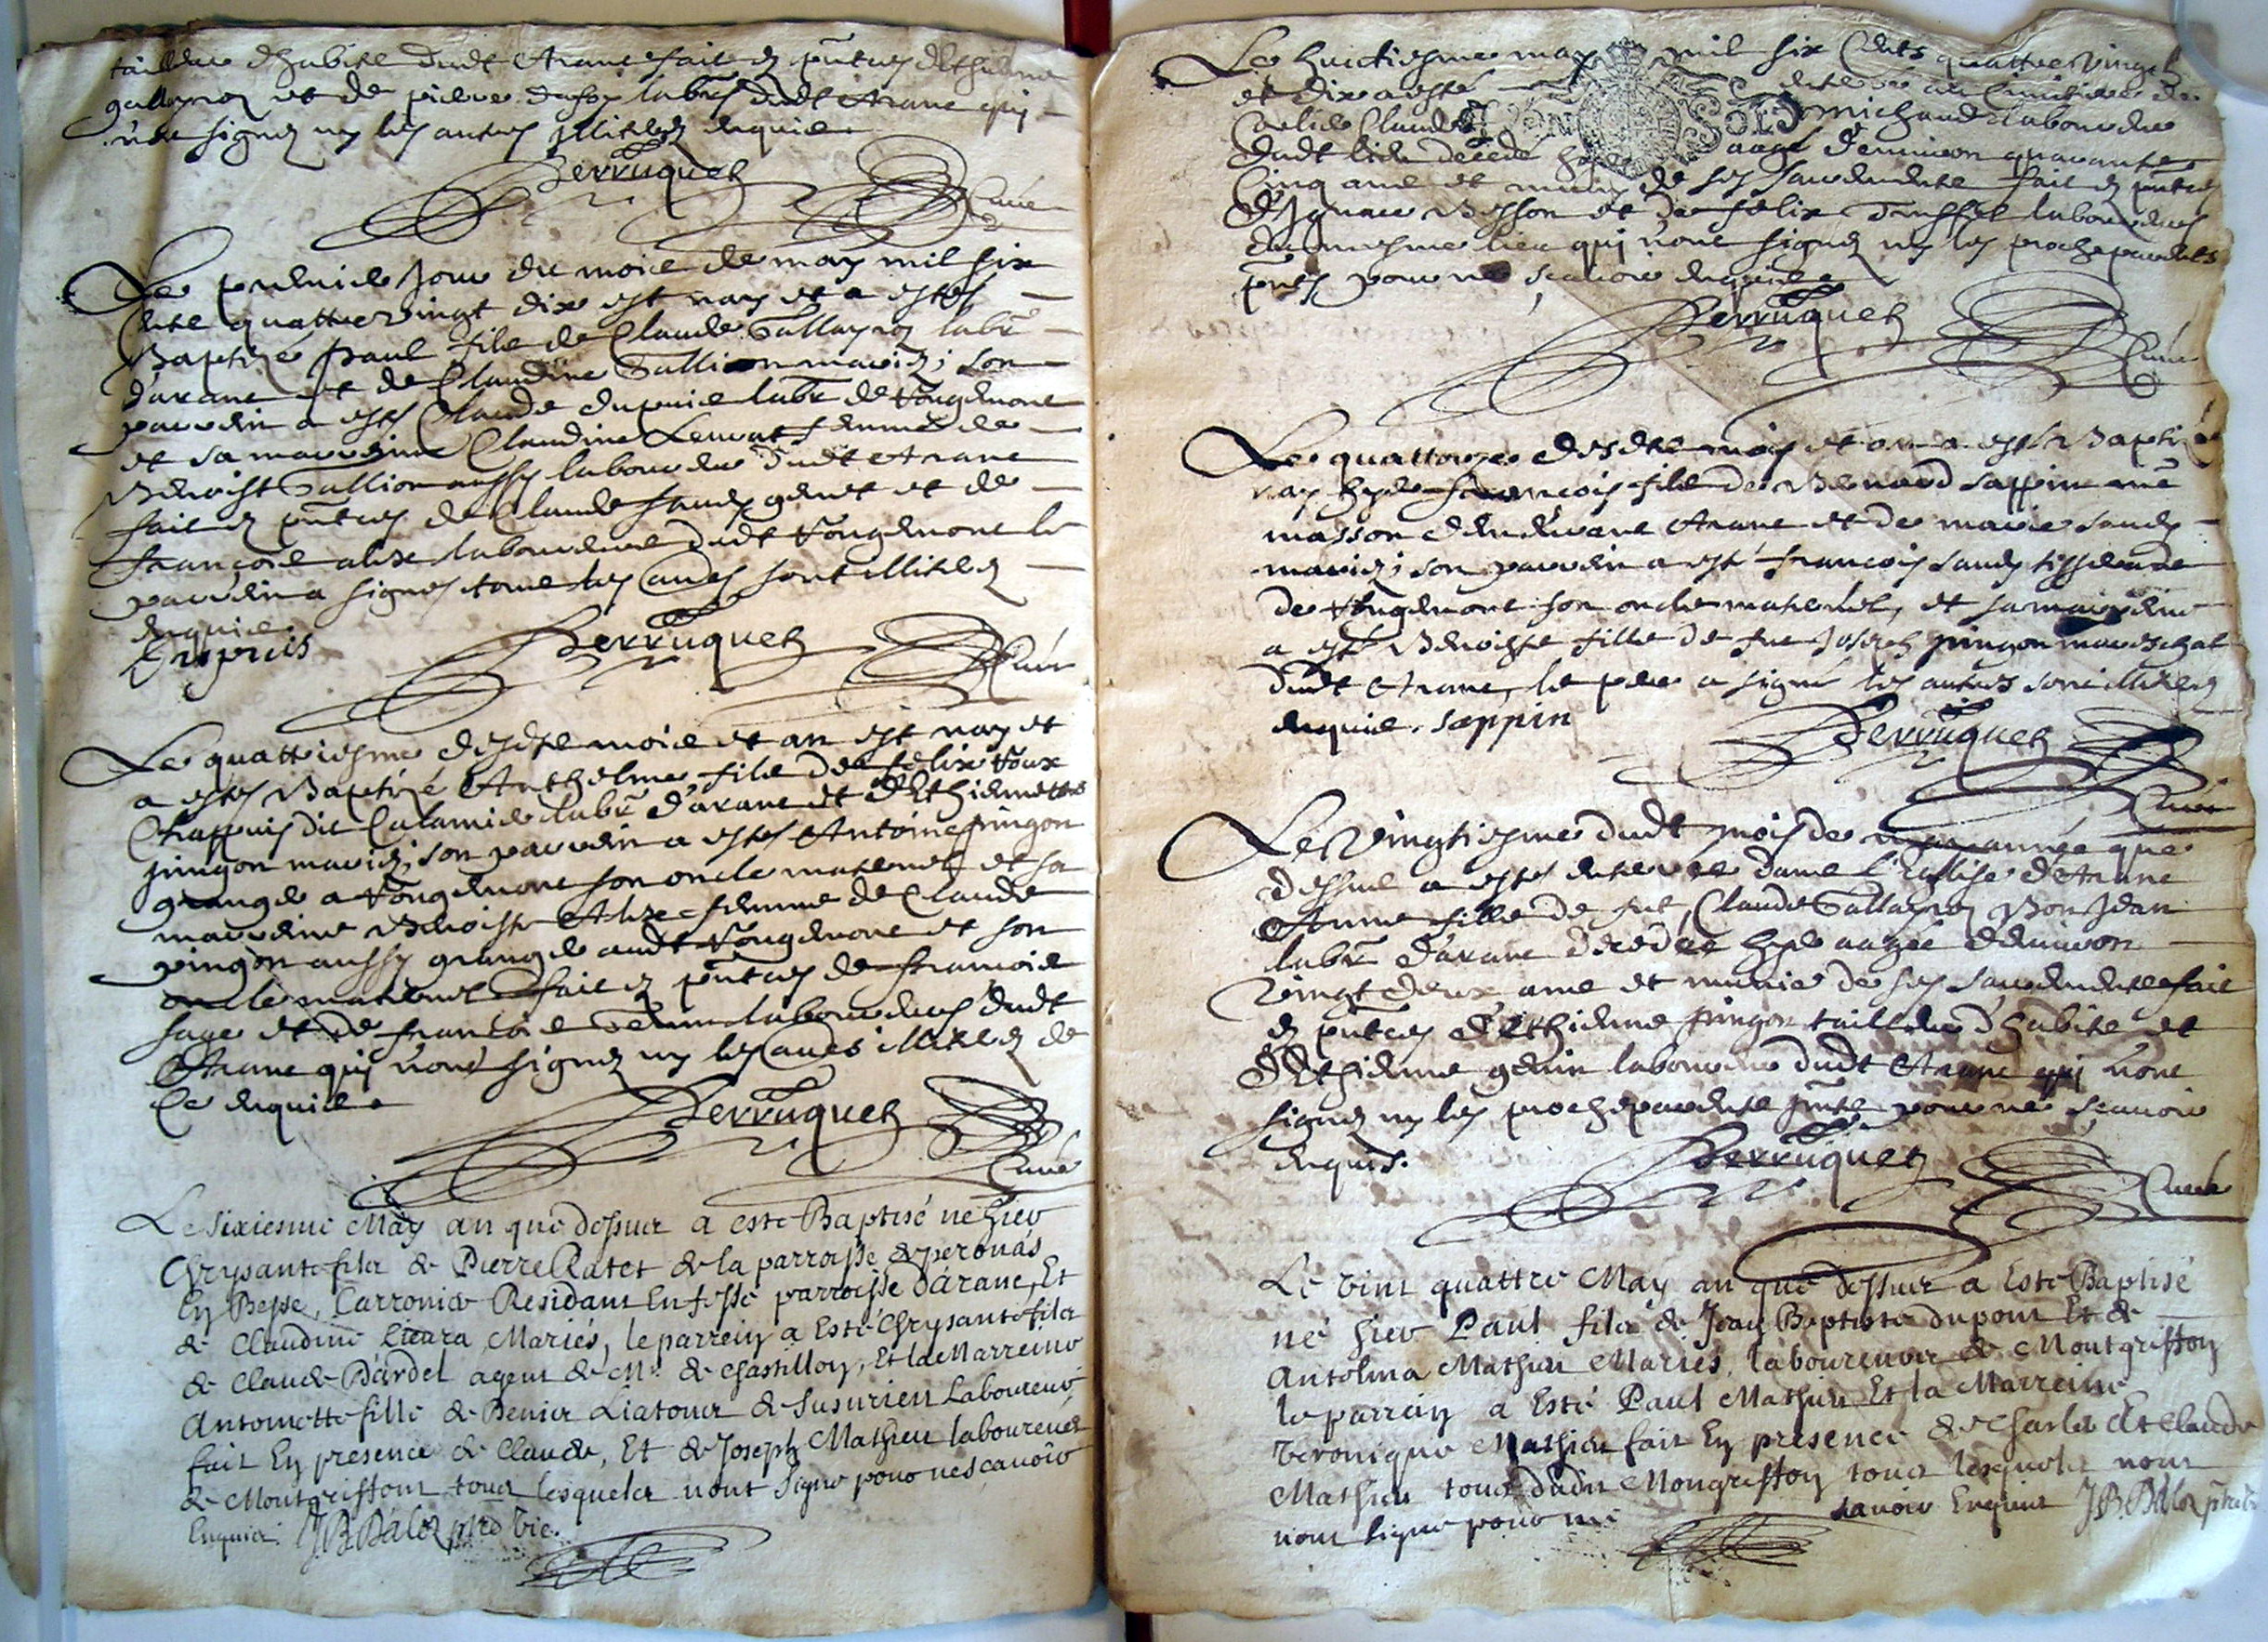 tailleur d'habits dudt Arane fait en pntces d'Ethienne
gallayroz et de pierre labr dudt Arane qui
n'ont signez ny les autres illitrez enquis.
Perruquet
Curé
Le premier jour du mois de may mil six
cents quattre vingt dix est nay et a esté
Baptizé paul fils de Claude Gallayroz labr
d'arane et de Claudine Gallion mariez; son
parrein a esté Claude dupuis labr de Rougemont
et sa marreine Claudine femme de
Benoist Gallion aussy laboureur dudt Arane
fait en pntces de Claude genet et de
françois alix laboureurs dudt Rougemont le
parrein a signé tous les autres sont illitrez
enquis.
Perruquet
Curé
Le quattriesme desdts mois et an est nay et
a esté Baptizé Anthelme fils de felix Roux
Chappuis dit labr d'arane et d'Ethiennette
pingon mariez; son parrein a esté Antoine pingon
granger a Rougemont son oncle maternel et sa
marreine Benoiste Alix femme de Claude
pingon aussy granger audt Rougemont et son
oncle maternel fait en pntces de françois
sage et de françois laboureurs dudt
Arane qui n'ont signez ny les autres illitrez de
ce enquis.
Perruquet
Curé
Le sixiesme May an que dessus a esté Baptisé né hier
Chrysante fils de Pierre Ratet de la parroisse de perouas
En Besse, Résidant En fosse parroisse d'arane, Et
de Claudine Mariés, le parrein a Esté Chrysante fils
de Claude Dardel agent de Mr. de Chastillon, Et la Marreine
Antoinette fille de Denier Liatour de Laboureur
fait En presence de Claude, Et de Joseph Mathieu laboureurs
de Montgriffont tous lesquels n'ont signé pour ne sçavoir
Enquis. JB Dalez
Le huictiesme may mil six Cents quattre vingt
et dix a esté enterré au Cimitiere de
Corlier Claude michaud laboureur
dudt lieu decedé hyer aagé d'environ quarante
Cinq ans et muny de ses sacrements fait en pntces
d'Ignace Besson et de felix laboureurs
du mesme lieu qui n'ont signez ny les proche parents
pnts pour ne sçavoir enquis.
Perruquet
Curé
Le quattorze desdts mois et an a esté Baptizé
nay hyer françois fils de Benoid sappin me
masson demeurant Arane et de marie
mariez; son parrein a esté françois tissier
de Rougemont son oncle maternel, et sa marreine
a esté Benoiste fille de feu Joseph pingon mareschal
dudt Arane, le pere a signé les autres sont illitrez
enquis. sappin
Perruquet
Curé
Le Vingtiesme dudt mois de may année que
dessus a esté enterrée dans l'Esglise d'Arane
Anne fille de feu Claude Gallayroz Bon Jean
labr d'arane decedée hyer aagée d'environ
vingt deux ans et munie de ses sacrements fait
en pntces d'Ethienne pingon tailleur d'habits et
d'Ethienne genin laboureur dudt Arane qui n'ont
signez ny les proche parents pnts pour ne sçavoir
enquis.
Perruquet
Curé
Le vint quattre May an que dessus a Esté Baptisé
né hier Paul fils de Jean Baptiste dupont Et de
Antolina Mathieu Mariés, laboureurs de Montgriffon
le parrein a Esté Paul Mathieu Et la Marreine
Veronique Mathieu fait En presence de Charles Et Claude
Mathieu tous dudit Mongriffon tous lesquels n'ont
nont signé pour ni savoir Enquis JB Dalez